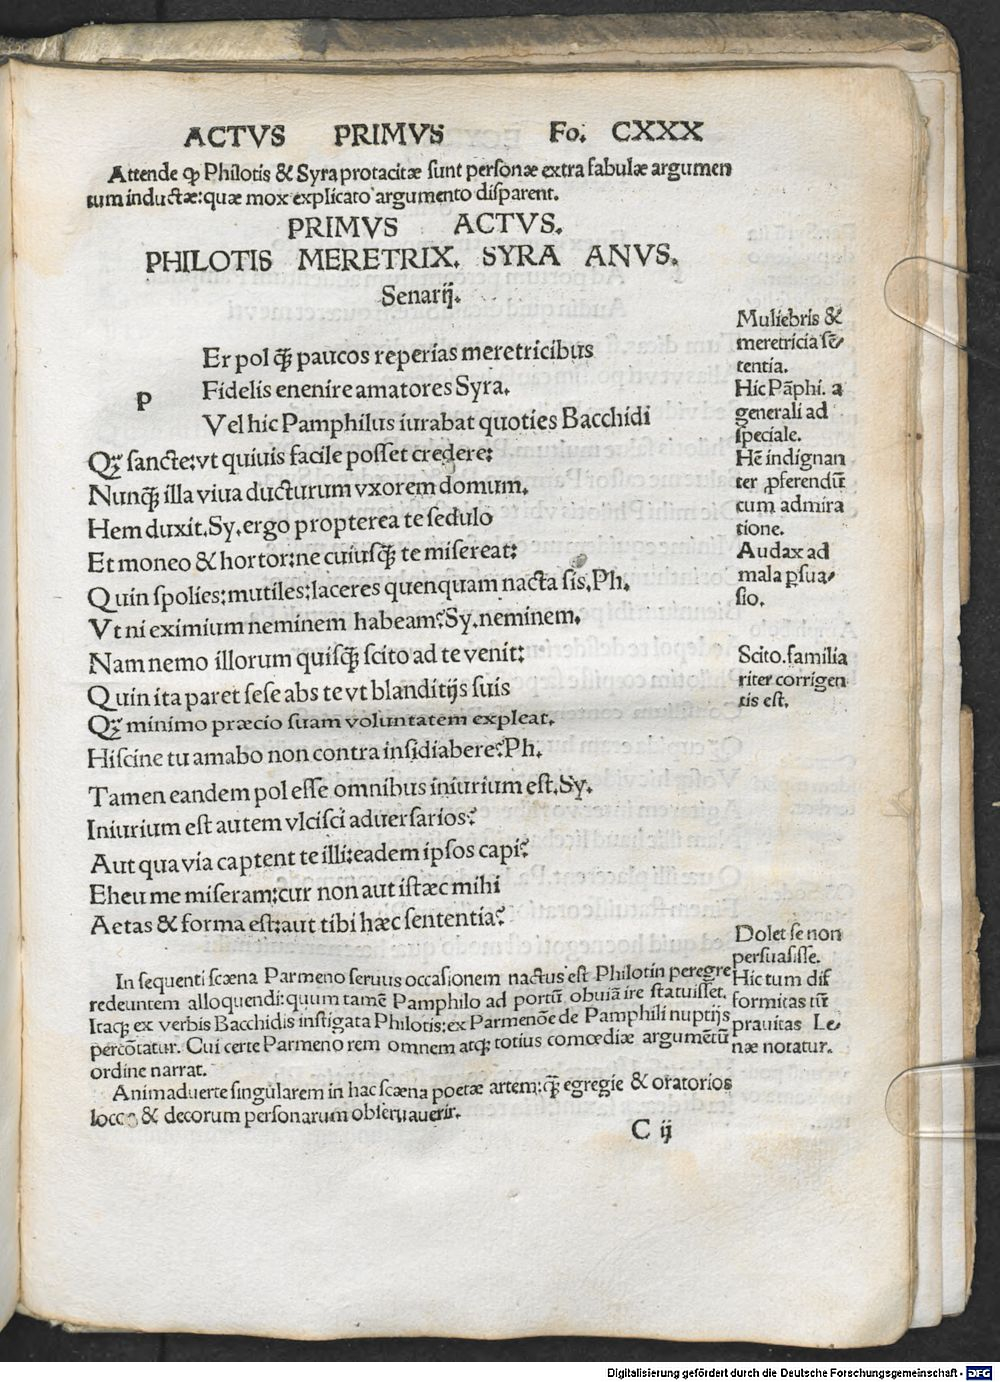 ACTVS PRIMVS Fo. CXXX
Attende ꝙ Philotis & Syra protacitæ sunt personæ extra fabulæ argumen
tum inductæ: quæ mox explicato argumento disparent.
PRIMVS ACTVS.
PHILOTIS MERETRIX. SYRA ANVS.
Senarij.
P
Er pol q̄ꝫ paucos reperias meretricibus
Fidelis enenire amatores Syra.
Vel hic Pamphilus iurabat quoties Bacchidi
Qꝫ sancte: vt quiuis facile posset credere:
Nunq̄ꝫ illa viua ducturum vxorem domum.
Hem duxit. Sy. ergo propterea te sedulo
Et moneo & hortor: ne cuiusq̄ꝫ te misereat:
Quin spolies: mutiles: laceres quenquam nacta sis. Ph.
Vt ni eximium neminem habeam? Sy. neminem.
Nam nemo illorum quisq̄ꝫ scito ad te venit:
Quin ita paret sese abs te vt blanditijs suis
Qꝫ minimo præcio suam voluntatem expleat.
Hiscine tu amabo non contra insidiabere? Ph.
Tamen eandem pol esse omnibus iniurium est. Sy.
Iniurium est autem vlcisci aduersarios?
Aut qua via captent te illi: eadem ipsos capi?
Eheu me miseram: cur non aut istæc mihi
Aetas & forma est: aut tibi hæc sententia?
Muliebris &
meretricia sē-
tentia.
Hic Pāphi. a
generali ad
speciale.
Hē indignan
ter ꝓferendū
cum admira
tione.
Audax ad
mala ꝑsua-
sio.
Scito. familia
riter corrigen
tis est.
Dolet se non
persuasisse.
Hic tum dif
formitas tū
prauitas Le-
næ notatur.
In sequenti scæna Parmeno seruus occasionem nactus est Philotin peregre
redeuntem alloquendi: quum tamē Pamphilo ad portū obuiā ire statuisset.
Itaqꝫ ex verbis Bacchidis instigata Philotis: ex Parmenōe de Pamphili nuptijs
percōtatur. Cui certe Parmeno rem omnem atqꝫ totius comœdiæ argumētū
ordine narrat.
Animaduerte singularem in hac scæna poetæ artem: q̄ꝫ egregie & oratorios
& decorum personarum obseruauerit.
C ij
Digitalisierung gefördert durch die Deutsche Forschungsgemeinschaft - DFG